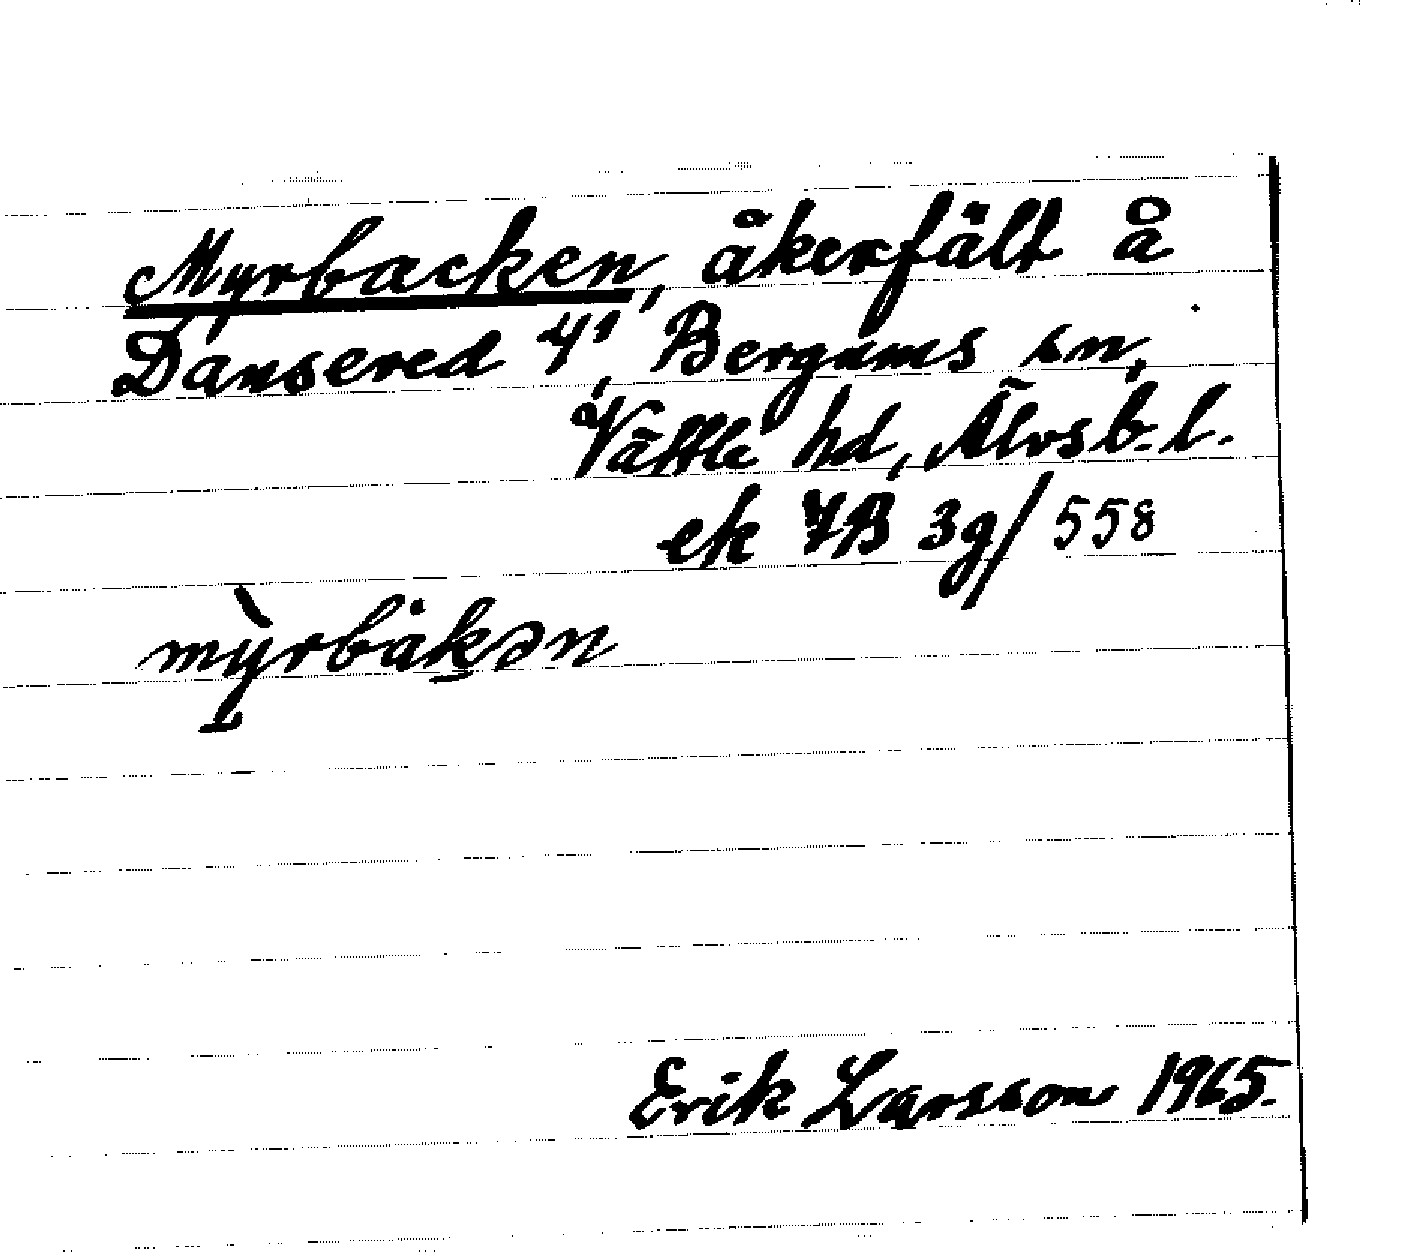 Myrbacken, åkerfält å
Dansered 4¹, Bergums sn,
Vättle hd, Älvsb. l.
ek 7B 3g/558
mỳrbåkən
Erik Larsson 1965.